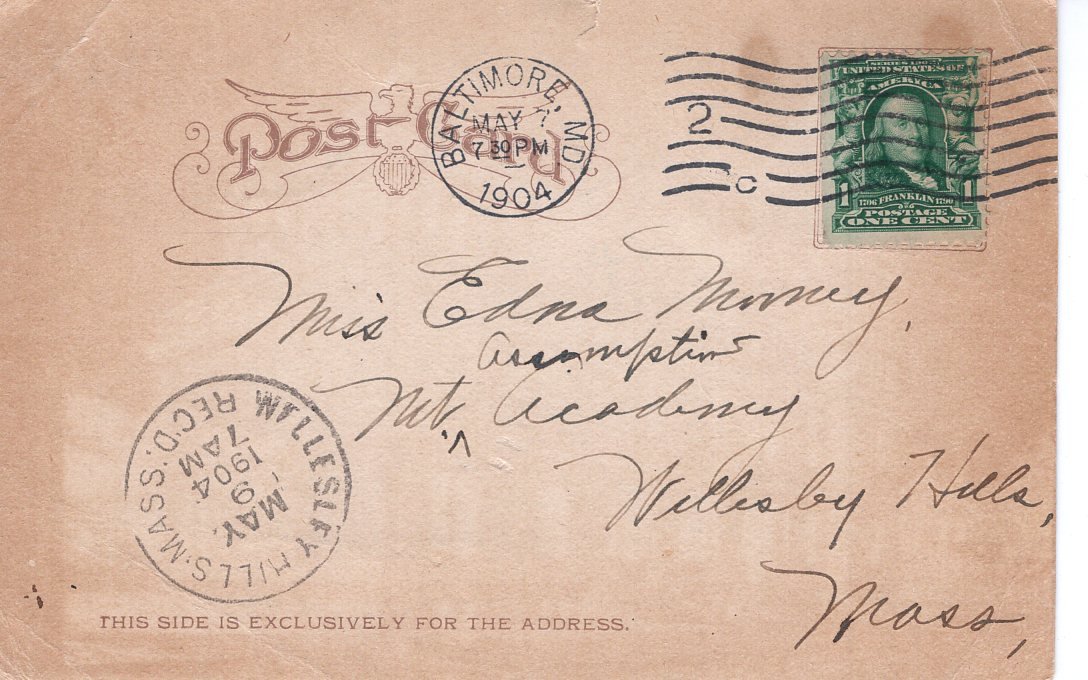 Post Card
BALTIMORE, MD
MAY 7
7 30 PM
1904
2
C
SERIES 1902
UNITED STATES OF
AMERICA
1 1
1706 FRANKLIN 1790
POSTAGE
ONE CENT
Miss Edna Mooney,
Assumption
Mt ^ Academy
Wellesby Hills,
Mass,
WELLESLEY HILLS. MASS. REC'D.
MAY,
9
1904
7 AM
THIS SIDE IS EXCLUSIVELY FOR THE ADDRESS.